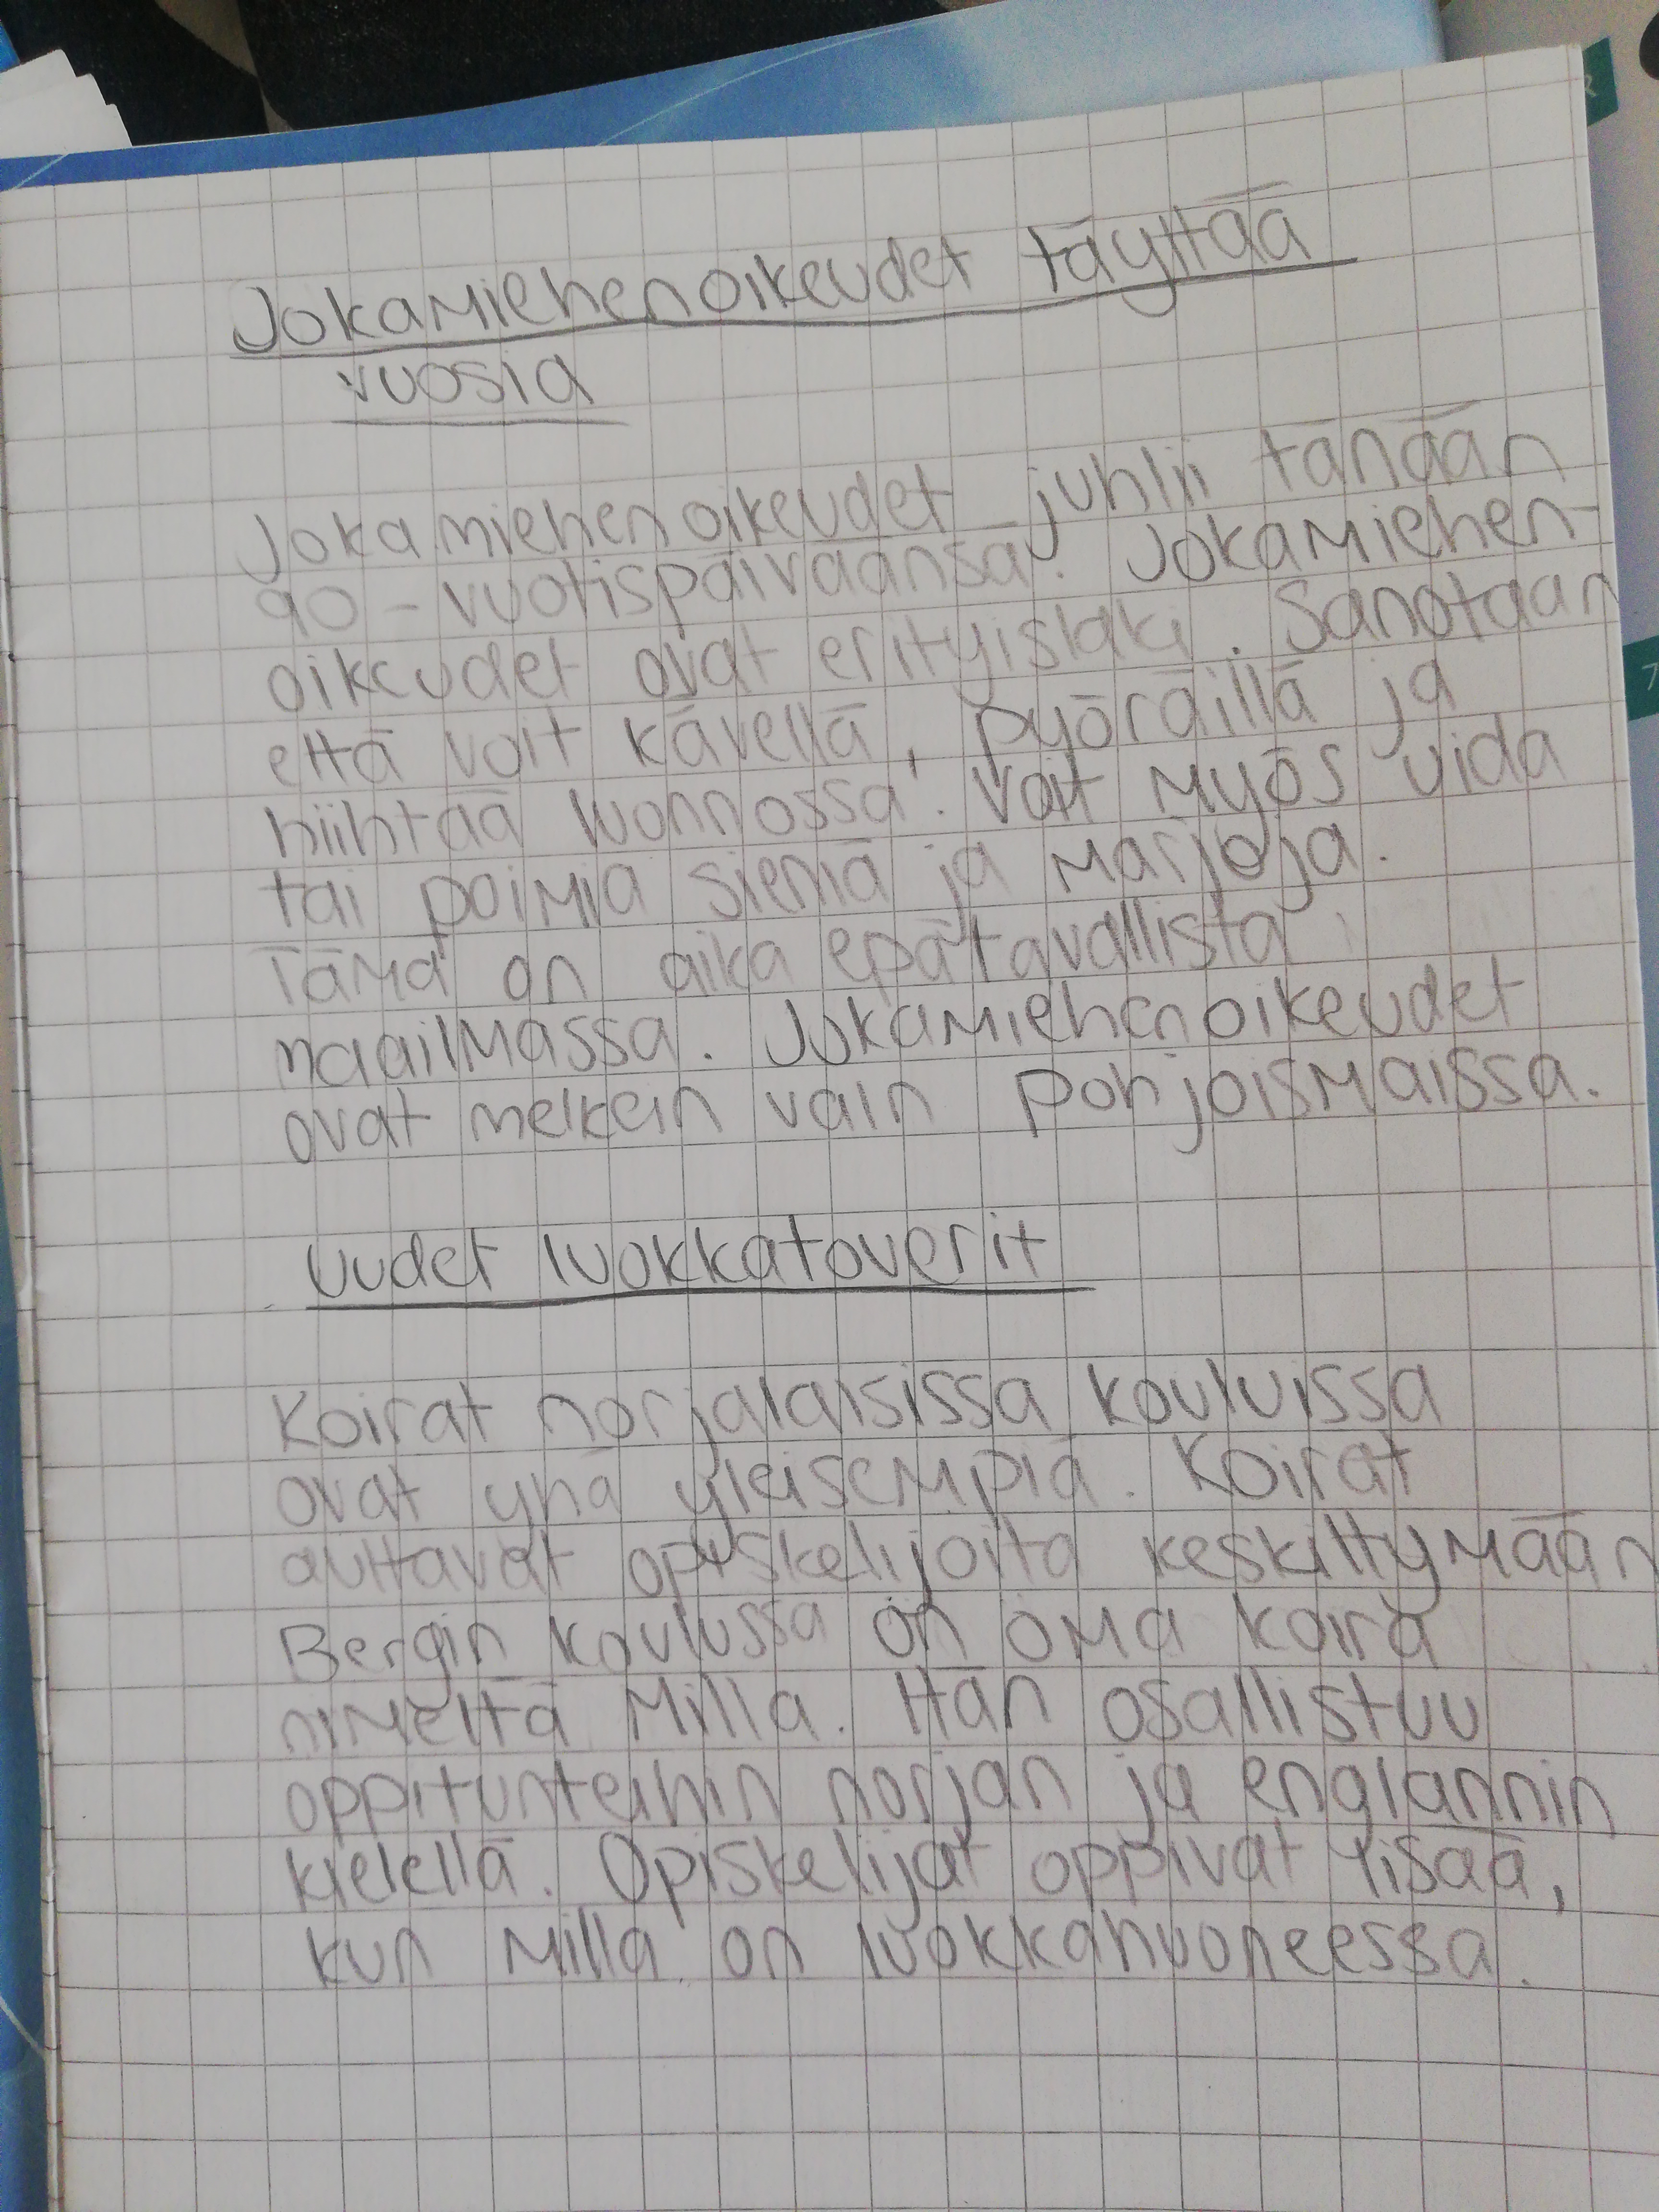 Jokamiehenoikeudet täyttää
vuosia
Jokamiehenoikeudet juhlii tänään
90-vuotispäiväänsä. Jokamiehen-
oikeudet ovat erityislaki. Sanotaan
että voit kävellä, pyöräillä ja
hiihtää luonnossa. Voit myös uida
tai poimia sieniä ja marjoja.
Tämä on aika epätavallista
maailmassa. Jokamiehenoikeudet
ovat melkein vain pohjoismaissa.
Uudet luokkatoverit
Koirat norjalaisissa kouluissa
ovat yhä yleisempiä. Koirat
auttavat opiskelijoita keskittymään
Bergin koulussa on oma koira
nimeltä Milla. Hän osallistuu
oppitunteihin norjan ja englannin
kielellä. Opiskelijat oppivat lisää,
kun Milla on luokkahuoneessa.